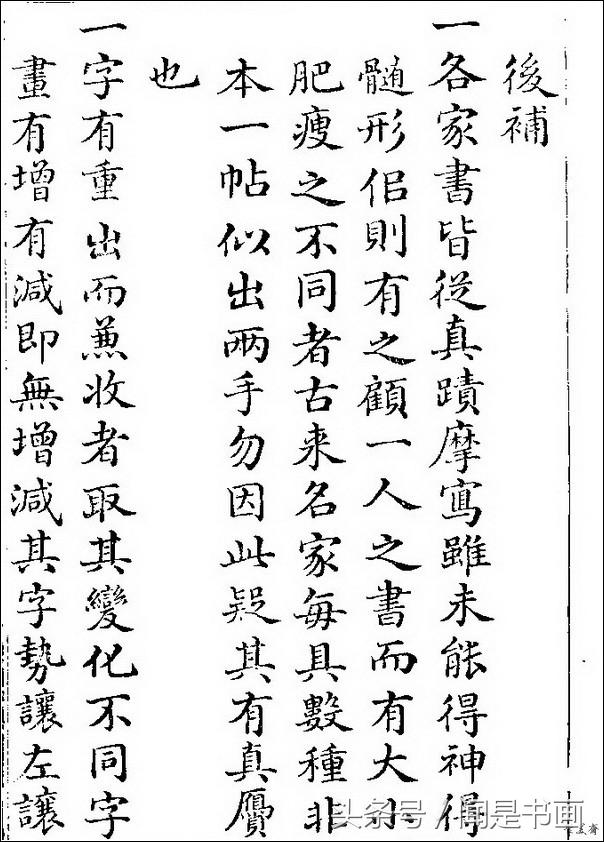 後補
一各家書皆從真蹟摩寫雖未能得神得
髓形侣則有之顧一人之書而有大小
肥瘦之不同者古来名家每具數種非
本一帖似出兩手勿因此疑其有真贗
也
一字有重出而蒹收者取其變化不同字
畫有增有減即無增減其字勢讓左讓
头条号/闻是书画